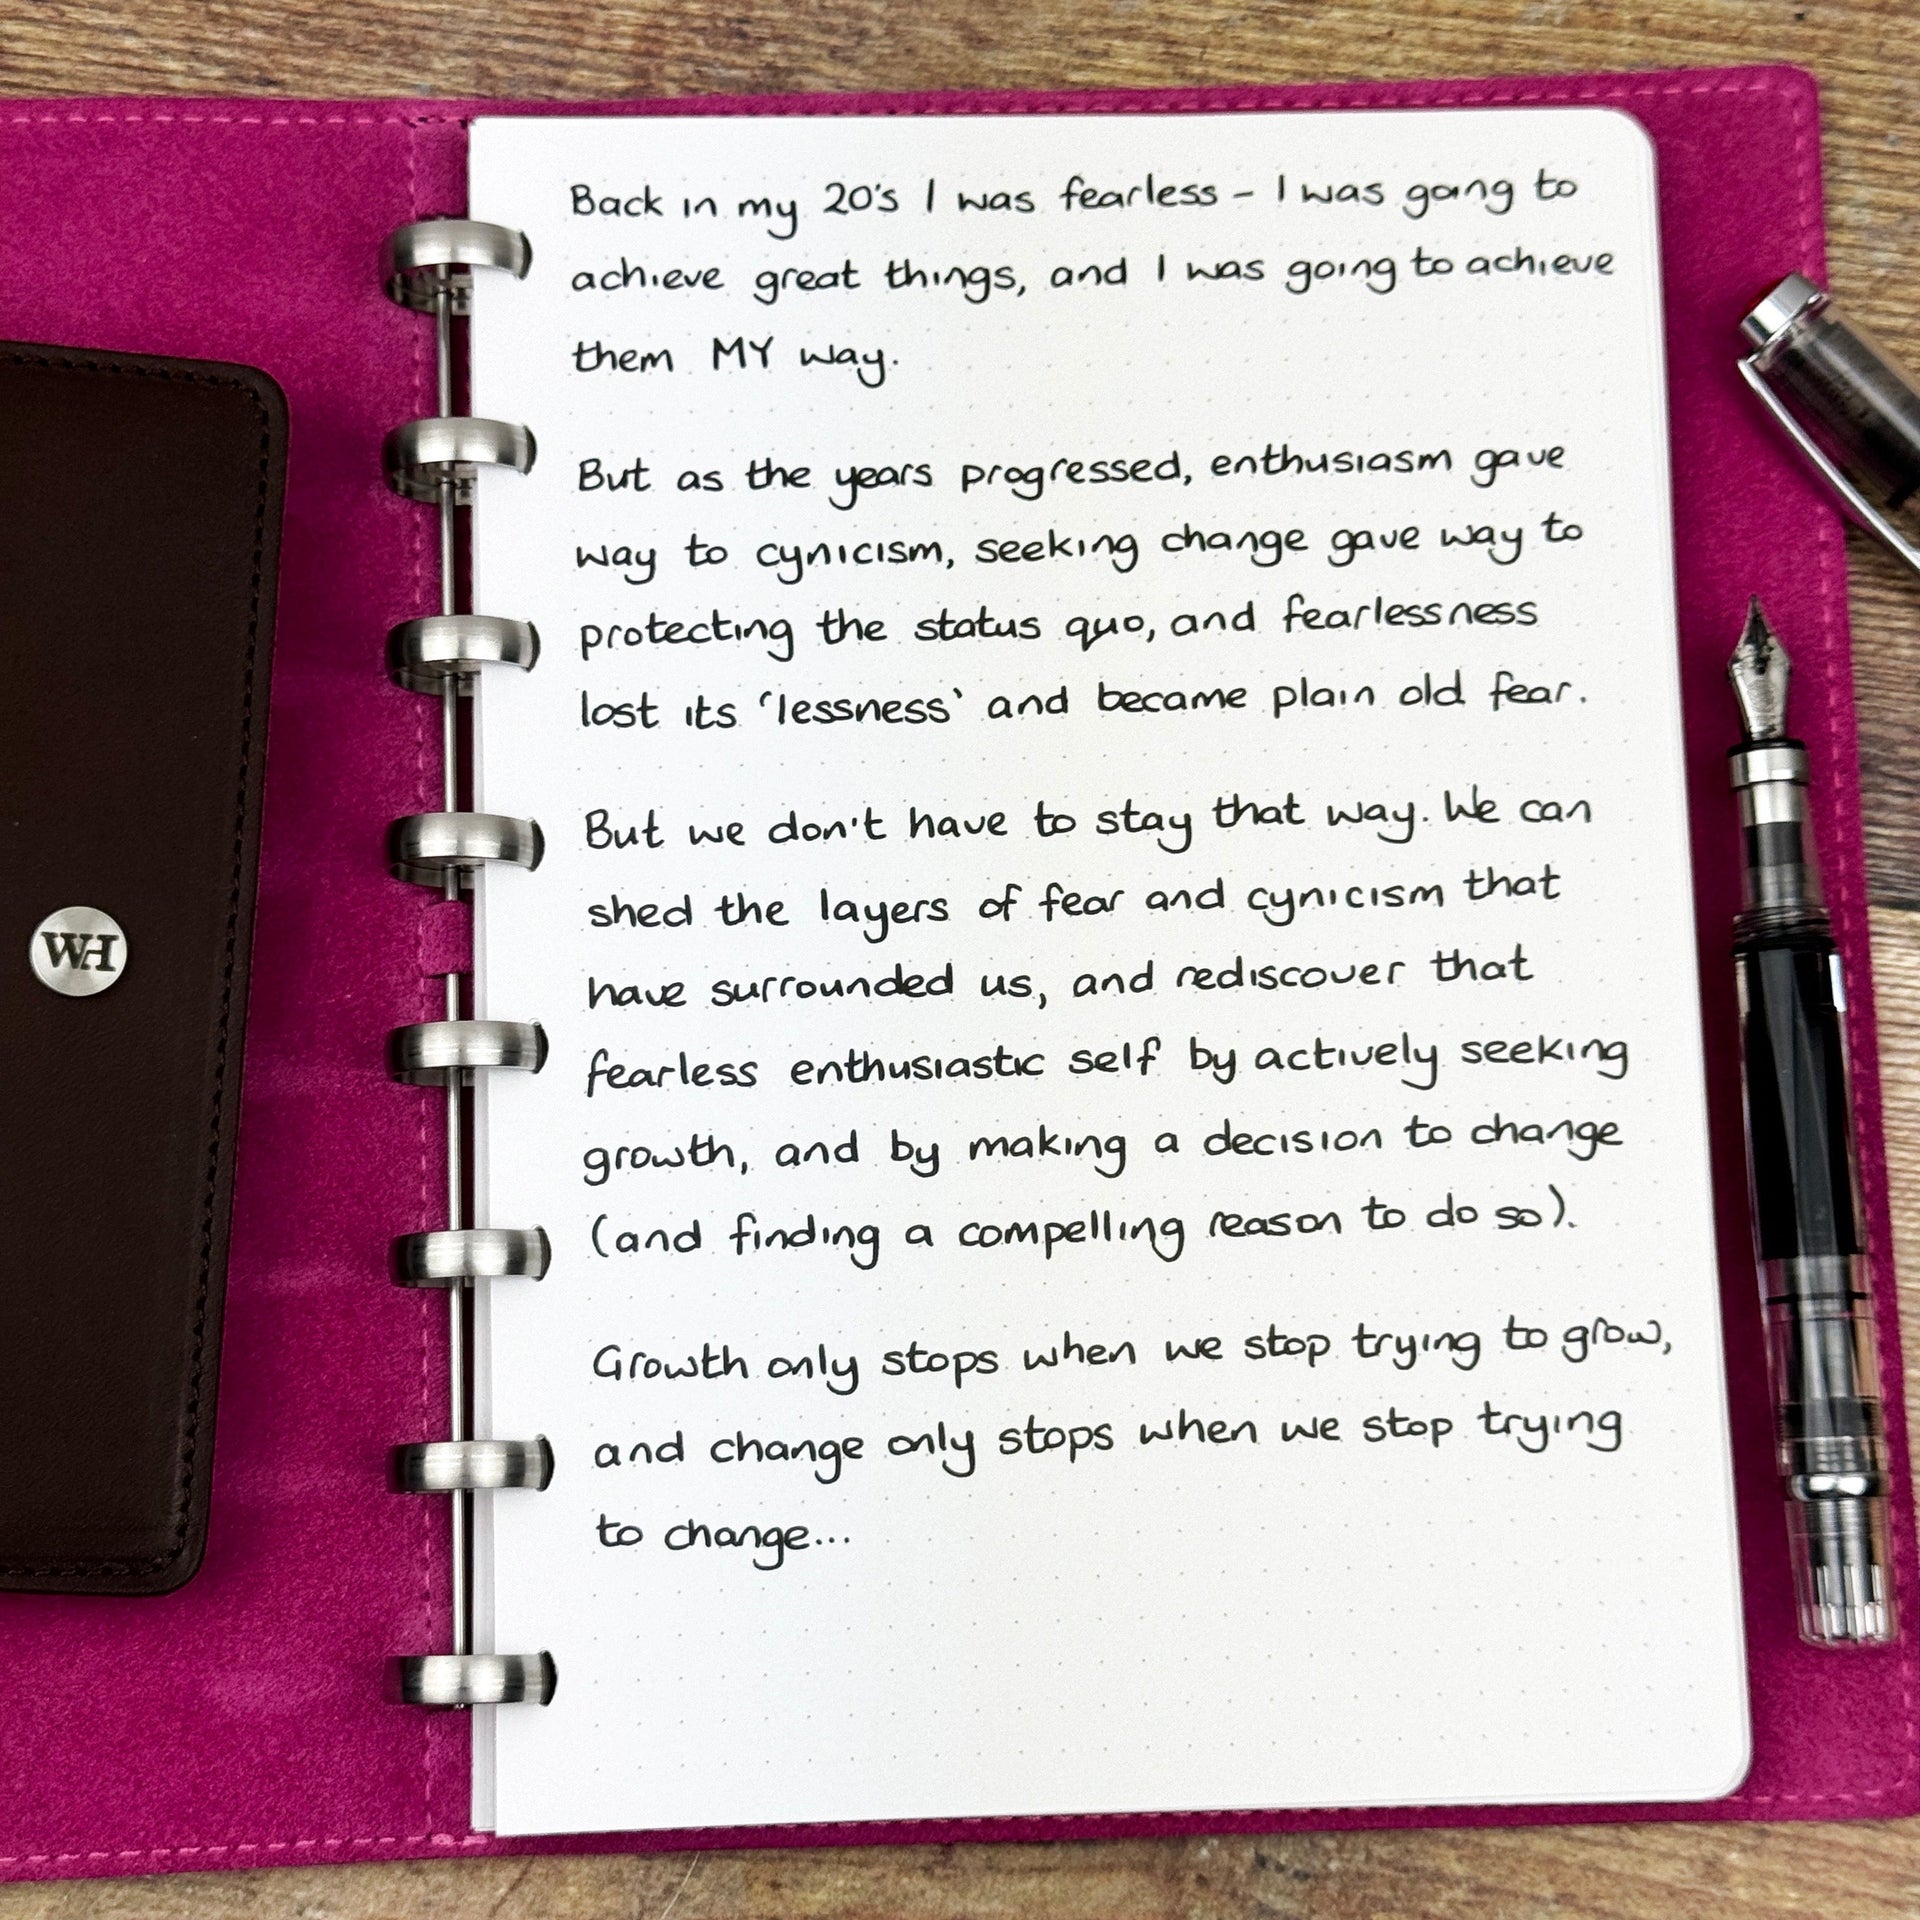 Back in my 20's I was fearless - I was going to
achieve great things, and I was going to achieve
them MY way.
But as the years progressed, enthusiasm gave
way to cynicism, seeking change gave way to
protecting the status quo, and fearlessness
lost its 'lessness' and became plain old fear.
But we don't have to stay that way. We can
shed the layers of fear and cynicism that
have surrounded us, and rediscover that
fearless enthusiastic self by actively seeking
growth, and by making a decision to change
(and finding a compelling reason to do so).
Growth only stops when we stop trying to grow,
and change only stops when we stop trying
to change...
WH